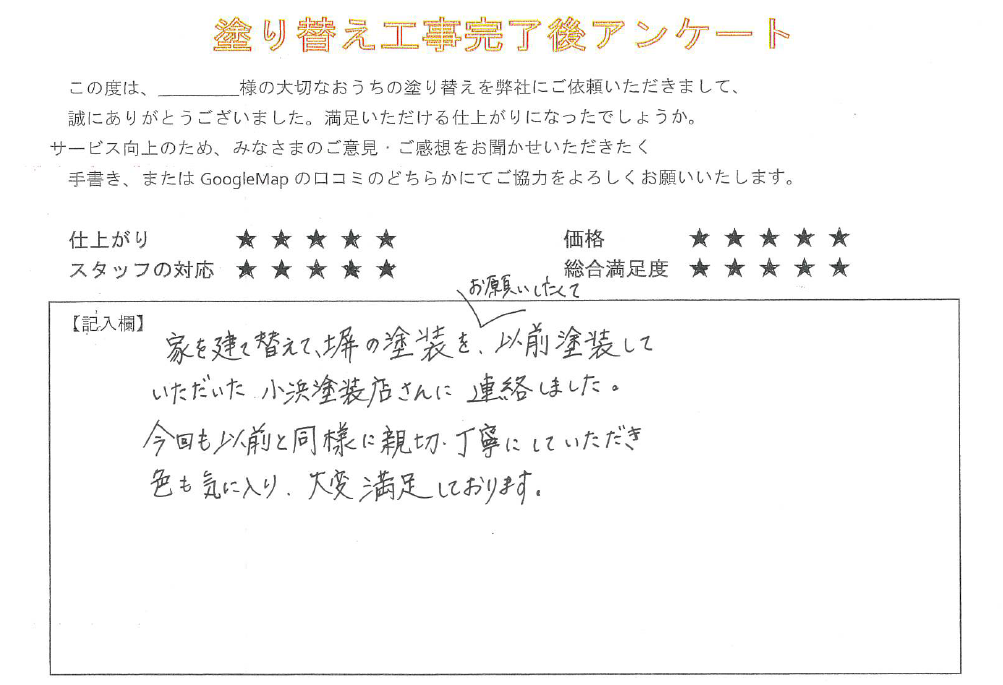 塗り替え工事完了後アンケート
この度は、________様の大切なおうちの塗り替えを弊社にご依頼いただきまして、
誠にありがとうございました。満足いただける仕上がりになったでしょうか。
サービス向上のため、みなさまのご意見・ご感想をお聞かせいただきたく
手書き、または GoogleMap の口コミのどちらかにてご協力をよろしくお願いいたします。
仕上がり ★★★★★ 価格 ★★★★★
スタッフの対応 ★★★★★ 総合満足度 ★★★★★
お願いしたくて
【記入欄】
家を建て替えて、塀の塗装を、以前塗装して
いただいた 小浜塗装店さんに 連絡しました。
今回も以前と同様に親切・丁寧にしていただき
色も気に入り、大変満足しております。